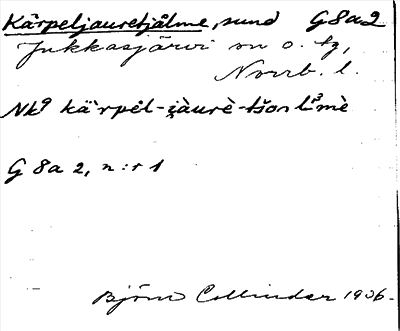 Kärpeljauretjålme, sund G8a2
Jukkasjärvi sn o. tg,
Norrb. l.
Nk9 kä'rpėl-i̯àurè-tšonl³mè
G 8a 2, n:r 1
Björn Collinder 1936.